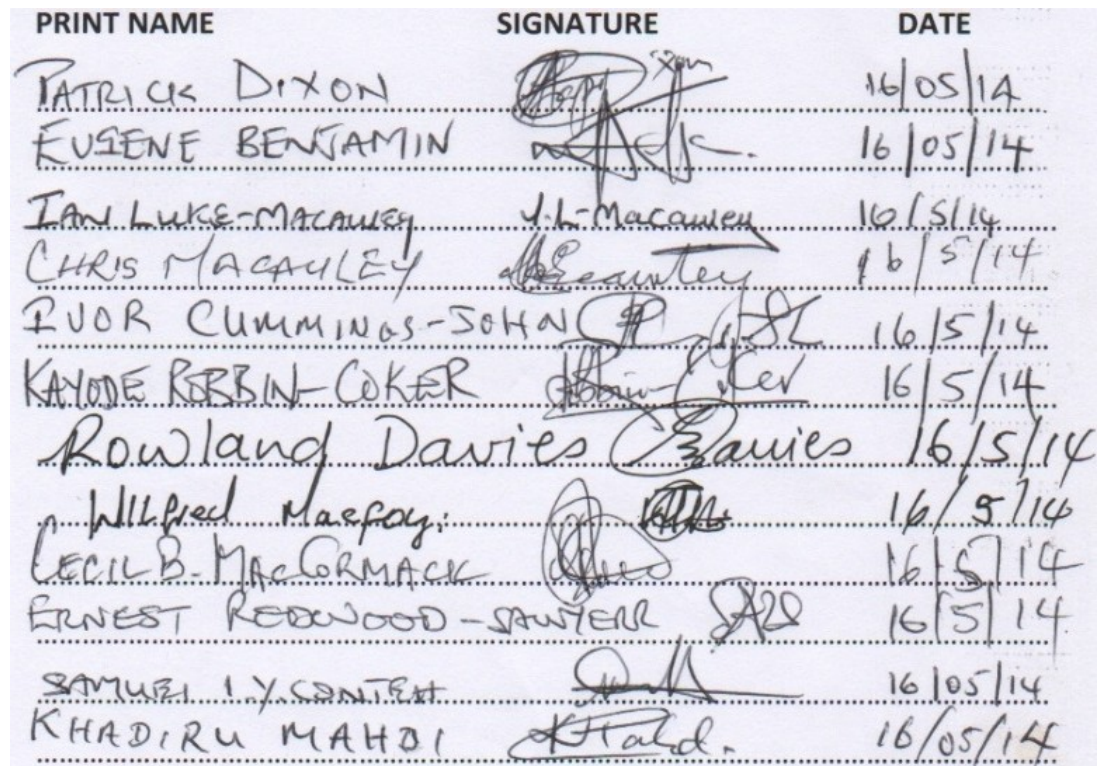 PRINT NAME SIGNATURE DATE
PATRICK DIXON Dixon 16/05/14
EUGENE BENJAMIN 16/05/14
IAN LUKE-MACAULEY I.L-Macauley 16/5/14
CHRIS MACAULEY 16/5/14
IVOR CUMMINGS-JOHN 16/5/14
KAYODE ROBBIN-COKER Robbin-Coker 16/5/14
Rowland Davies Davies 16/5/14
WILfred Macfoy. 16/5/14
CECIL B. MACCORMACK 16/5/14
ERNEST REDWOOD-SAWYERR 16/5/14
SAMUEL I.Y. CONTEH 16/05/14
KHADIRU MAHDI 16/05/14